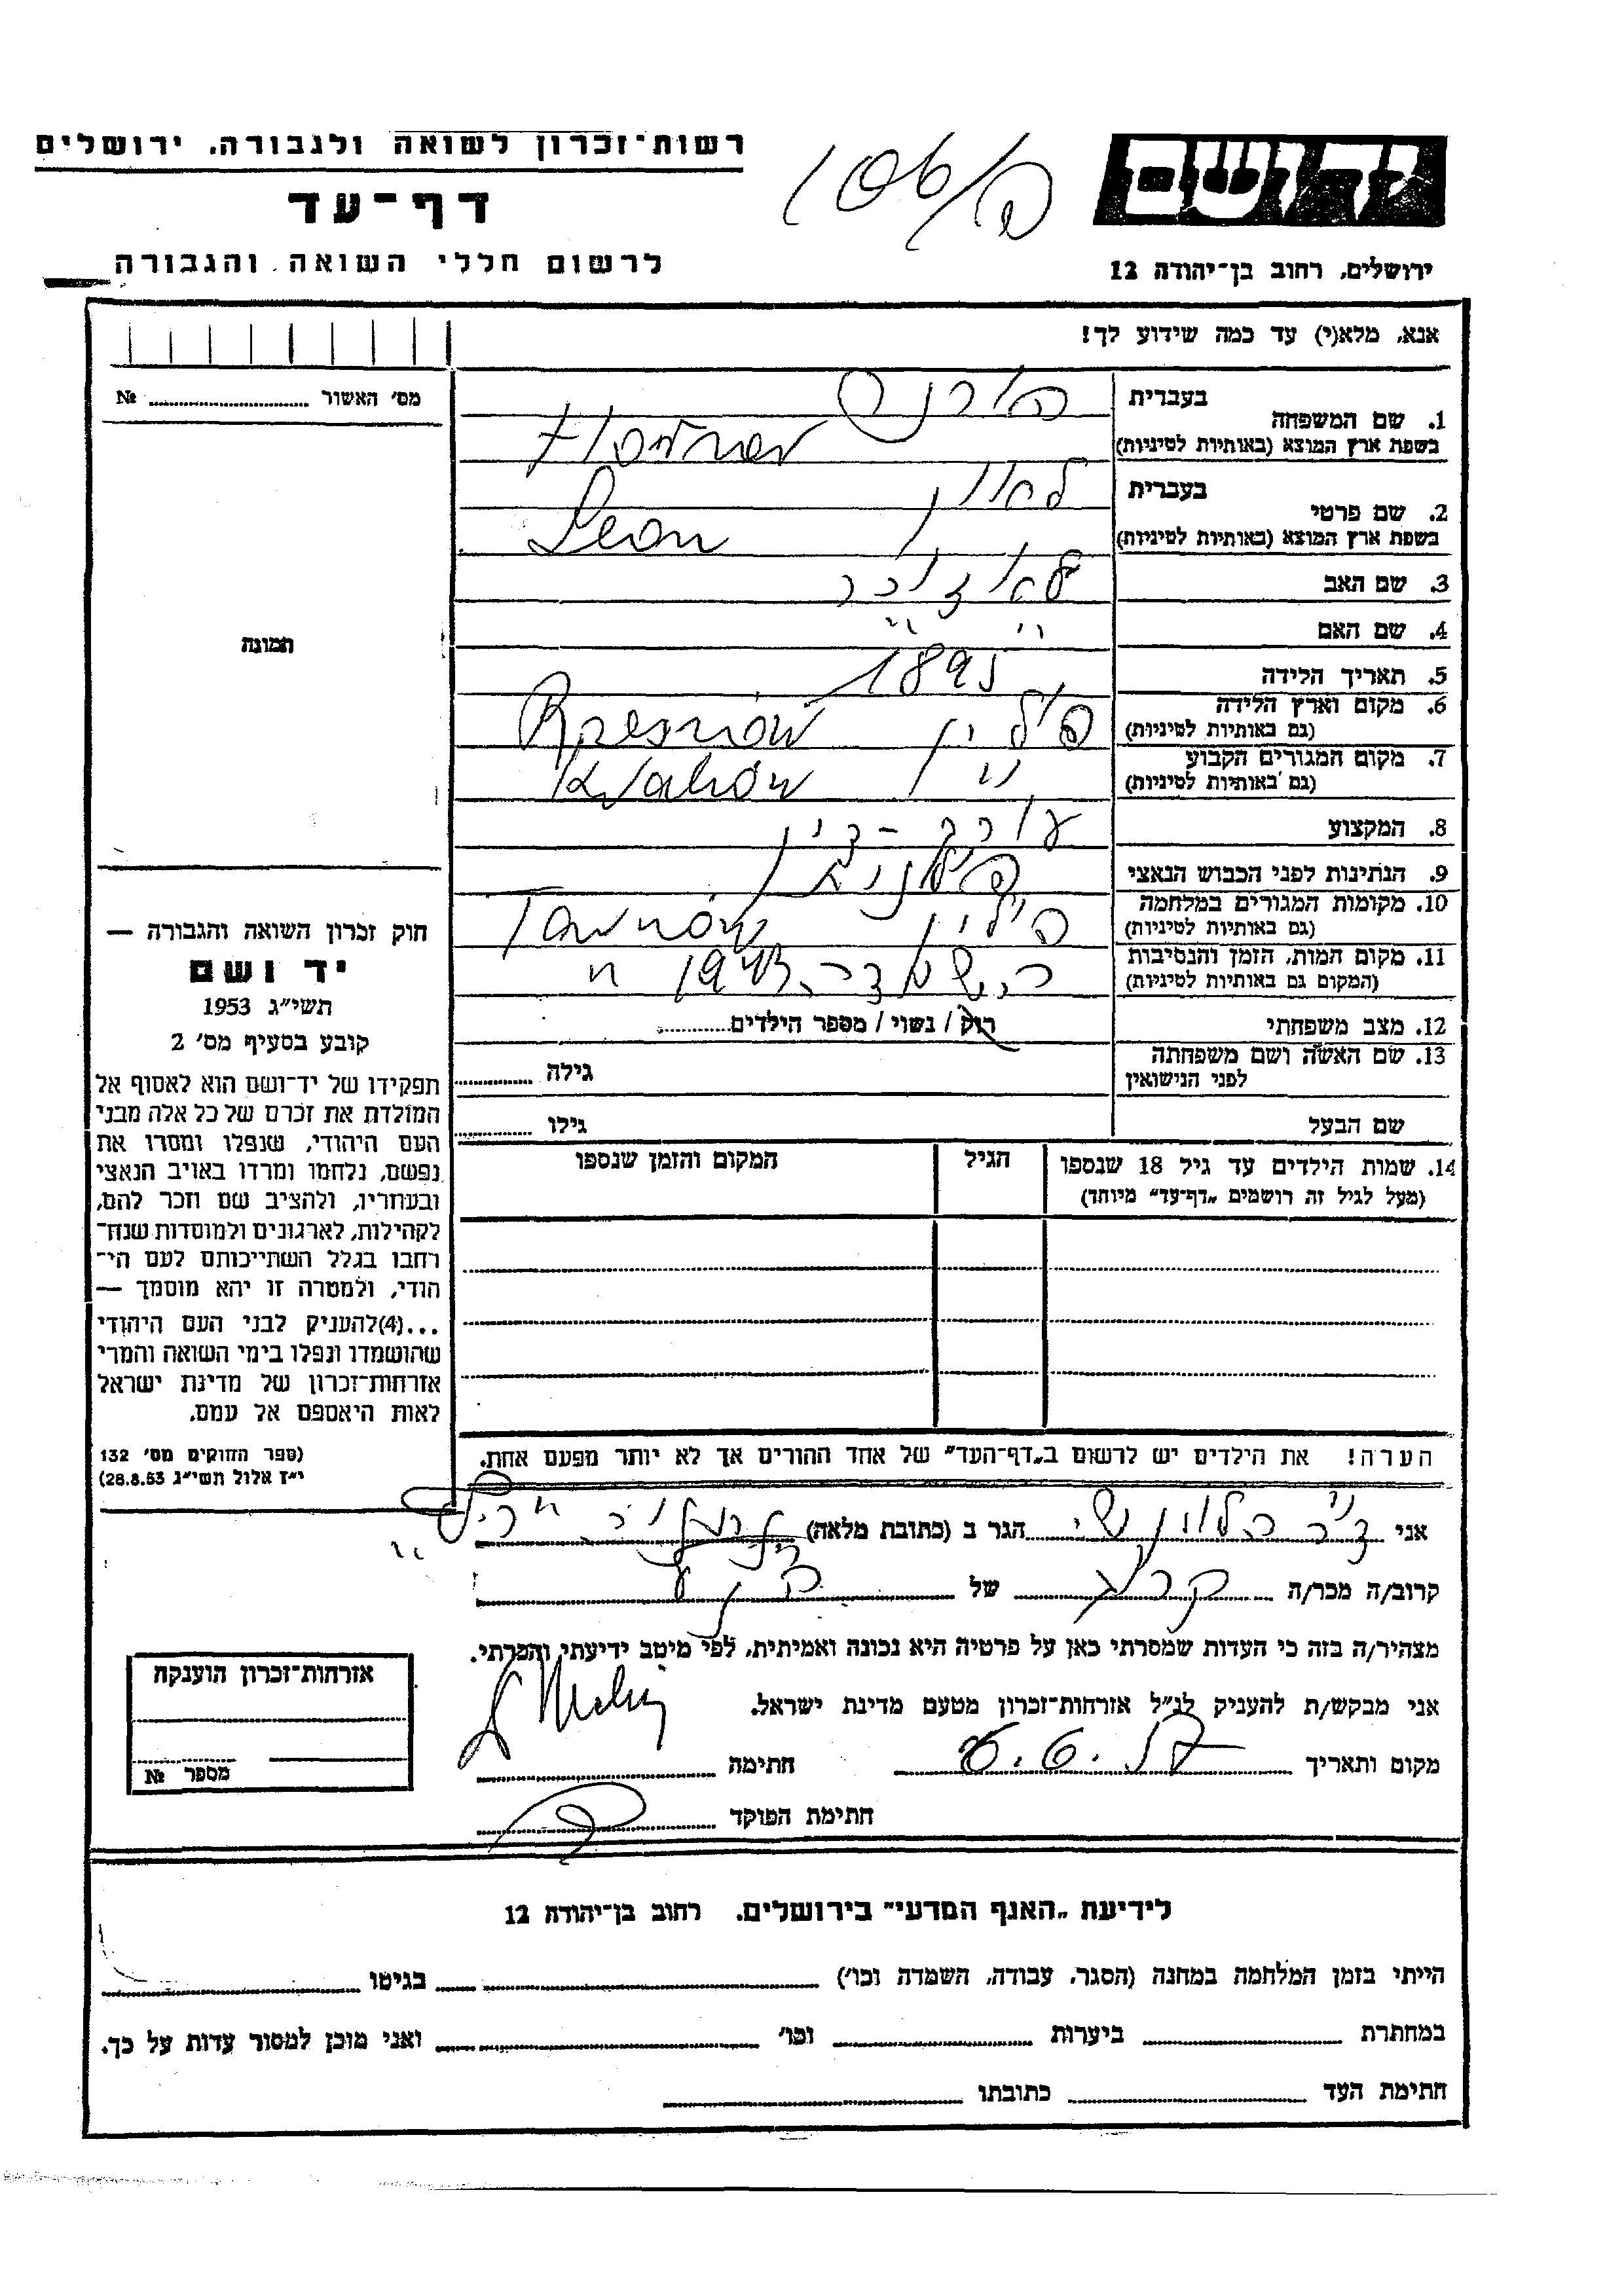 רשות־זכרון לשואה ולגבורה. ירושלים
דף־עד
לרשום חללי השואה והגבורה
יד ושם
ירושלים, רחוב בן־יהודה 12
אנא, מלא(י) עד כמה שידוע לך!
מס׳ האשור №
1. שם המשפחה
בעברית
בשפת ארץ המוצא (באותיות לטיניות)
2. שם פרטי
בעברית לאון
בשפת ארץ המוצא (באותיות לטיניות) Leon
3. שם האב
4. שם האם
5. תאריך הלידה 1895
6. מקום וארץ הלידה
(גם באותיות לטיניות) פולין
7. מקום המגורים הקבוע
(גם באותיות לטיניות) Kraków
8. המקצוע עורך-דין
9. הנתינות לפני הכבוש הנאצי
10. מקומות המגורים במלחמה
(גם באותיות לטיניות) פולין Tarnów
11. מקום המות, הזמן והנסיבות
(המקום גם באותיות לטיניות) בהשמדה 1943
12. מצב משפחתי רוק / נשוי / מספר הילדים
13. שם האשה ושם משפחתה
לפני הנישואין גילה
שם הבעל גילו
14. שמות הילדים עד גיל 18 שנספו
(מעל לגיל זה רושמים „דף־עד״ מיוחד)
הגיל
המקום והזמן שנספו
הערה! את הילדים יש לרשום ב„דף־העד״ של אחד ההורים אך לא יותר מפעם אחת.
תמונה
חוק זכרון השואה והגבורה —
יד ושם
תשי״ג 1953
קובע בסעיף מס׳ 2
תפקידו של יד־ושם הוא לאסוף אל
המולדת את זכרם של כל אלה מבני
העם היהודי, שנפלו ומסרו את
נפשם, נלחמו ומרדו באויב הנאצי
ובעוזריו, ולהציב שם וזכר להם,
לקהילות, לארגונים ולמוסדות שנח־
רחבו בגלל השתייכותם לעם הי־
הודי, ולמטרה זו יהא מוסמך —
...(4)להעניק לבני העם היהודי
שהושמדו ונפלו בימי השואה והמרי
אזרחות־זכרון של מדינת ישראל
לאות היאספם אל עמם.
(ספר החוקים מס׳ 132
י״ז אלול תשי״ג 28.8.53)
אני ד״ר הגר ב (כתובת מלאה)
קרוב/ה מכר/ה קרוב של
מצהיר/ה בזה כי העדות שמסרתי כאן על פרטיה היא נכונה ואמיתית, לפי מיטב ידיעתי והכרתי.
אני מבקש/ת להעניק לנ״ל אזרחות־זכרון מטעם מדינת ישראל.
מקום ותאריך חתימה
חתימת הפוקד
אזרחות־זכרון הוענקה
מספר №
לידיעת „האגף המדעי״ בירושלים. רחוב בן־יהודה 12
הייתי בזמן המלחמה במחנה (הסגר, עבודה, השמדה וכו׳) בגיטו
במחתרת ביערות וכו׳ ואני מוכן למסור עדות על כך.
חתימת העד כתובתו